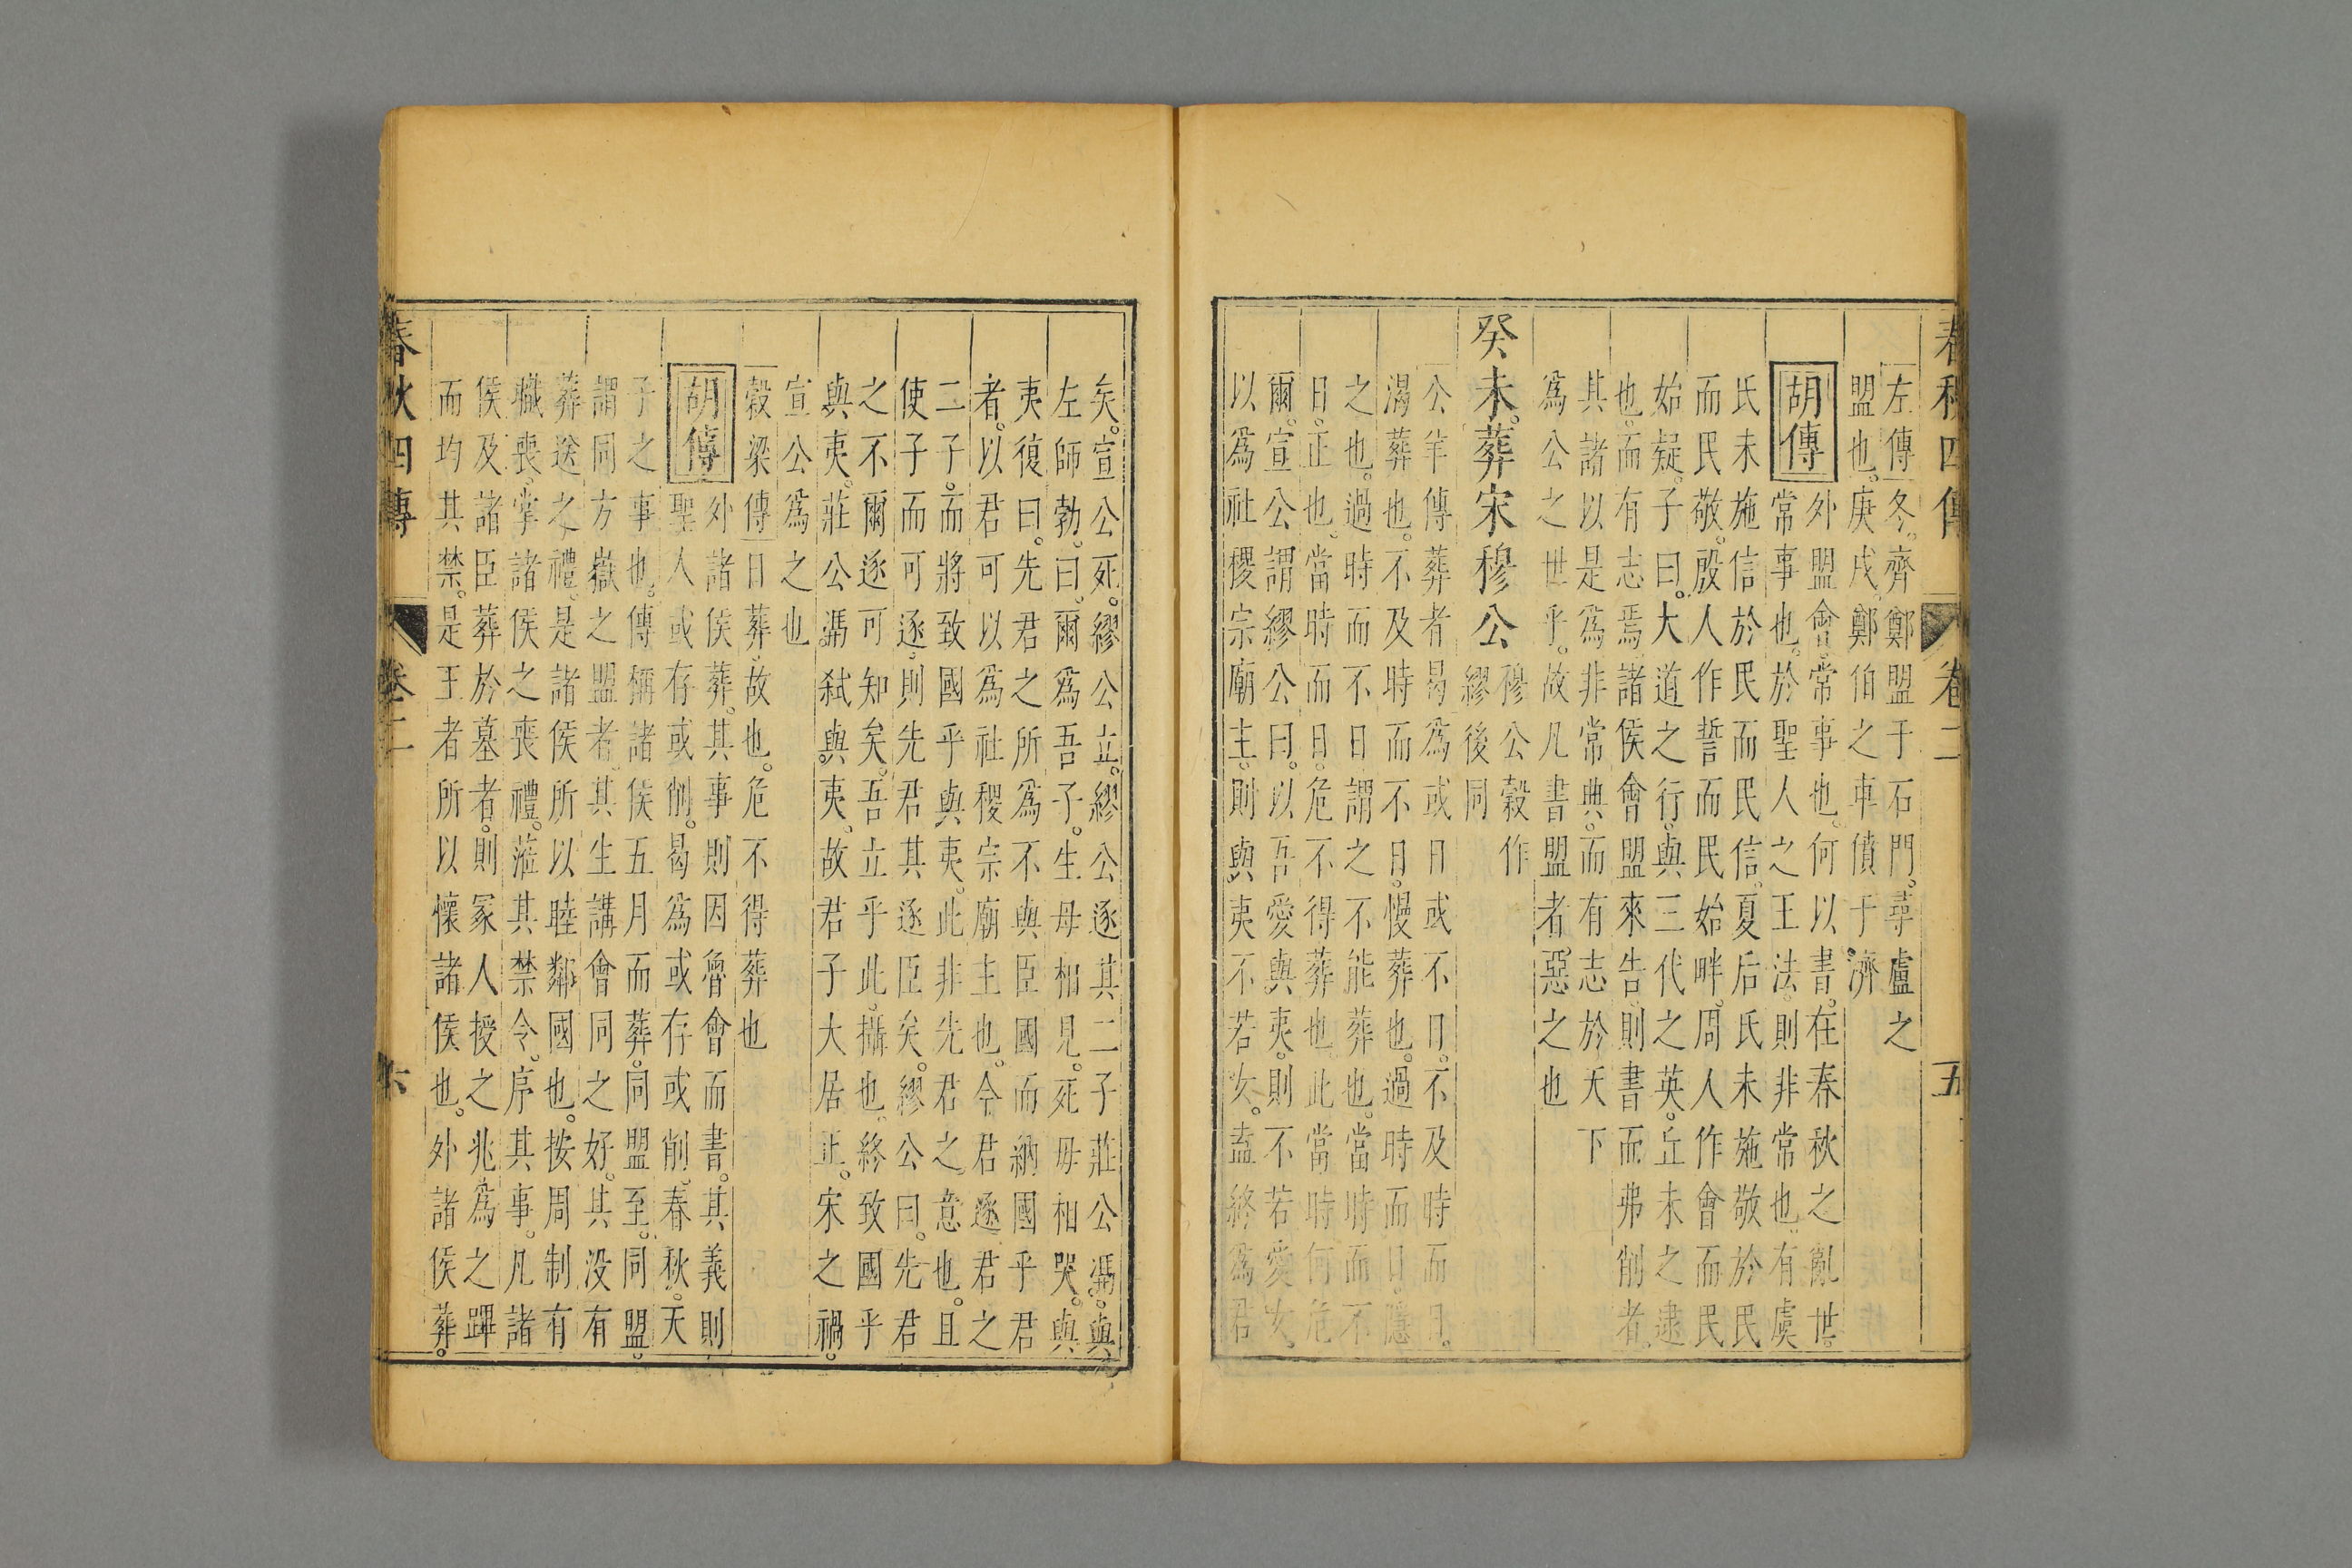 春秋四傳 卷二 五
左傳冬。齊鄭盟于石門。尋盧之
盟也。庚戌。鄭伯之車僨于濟
胡傳
外盟會。常事也。何以書。在春秋之亂世。
常事也。於聖人之王法。則非常也。有虞
氏未施信於民而民信。夏后氏未施敬於民
而民敬。殷人作誓而民始畔。周人作會而民
始疑。子曰。大道之行。與三代之英。丘未之逮
也。而有志焉。諸侯會盟來告。則書而弗削者。
其諸以是爲非常典。而有志於天下
爲公之世乎。故凡書盟者。惡之也
癸未。葬宋穆公
穆公穀作
繆後同
公羊傳葬者曷爲或日或不日。不及時而日。
渴葬也。不及時而不日。慢葬也。過時而日。隱
之也。過時而不日。謂之不能葬也。當時而不
日。正也。當時而日。危不得葬也。此當時何危
爾。宣公謂繆公曰。以吾愛與夷。則不若愛女。
以爲社稷宗廟主。則與夷不若女。盍終爲君
矣。宣公死。繆公立。繆公逐其二子莊公馮。與
左師勃。曰。爾爲吾子。生毋相見。死毋相哭。與
夷復曰。先君之所爲不與臣國而納國乎君
者。以君可以爲社稷宗廟主也。今君逐君之
二子。而將致國乎與夷。此非先君之意也。且
使子而可逐。則先君其逐臣矣。繆公曰。先君
之不爾逐可知矣。吾立乎此。攝也。終致國乎
與夷。莊公馮弒與夷。故君子大居正。宋之禍。
宣公爲之也
穀梁傳日葬。故也。危不得葬也
胡傳
外諸侯葬。其事則因魯會而書。其義則
聖人或存或削。曷爲或存或削。春秋。天
子之事也。傳稱諸侯五月而葬。同盟至。同盟。
謂同方嶽之盟者。其生講會同之好。其没有
葬送之禮。是諸侯所以睦鄰國也。按周制有
職喪。掌諸侯之喪禮。涖其禁令。序其事。凡諸
侯及諸臣葬於墓者。則冢人授之兆。爲之蹕
而均其禁。是王者所以懷諸侯也。外諸侯葬。
春秋四傳 卷二 六